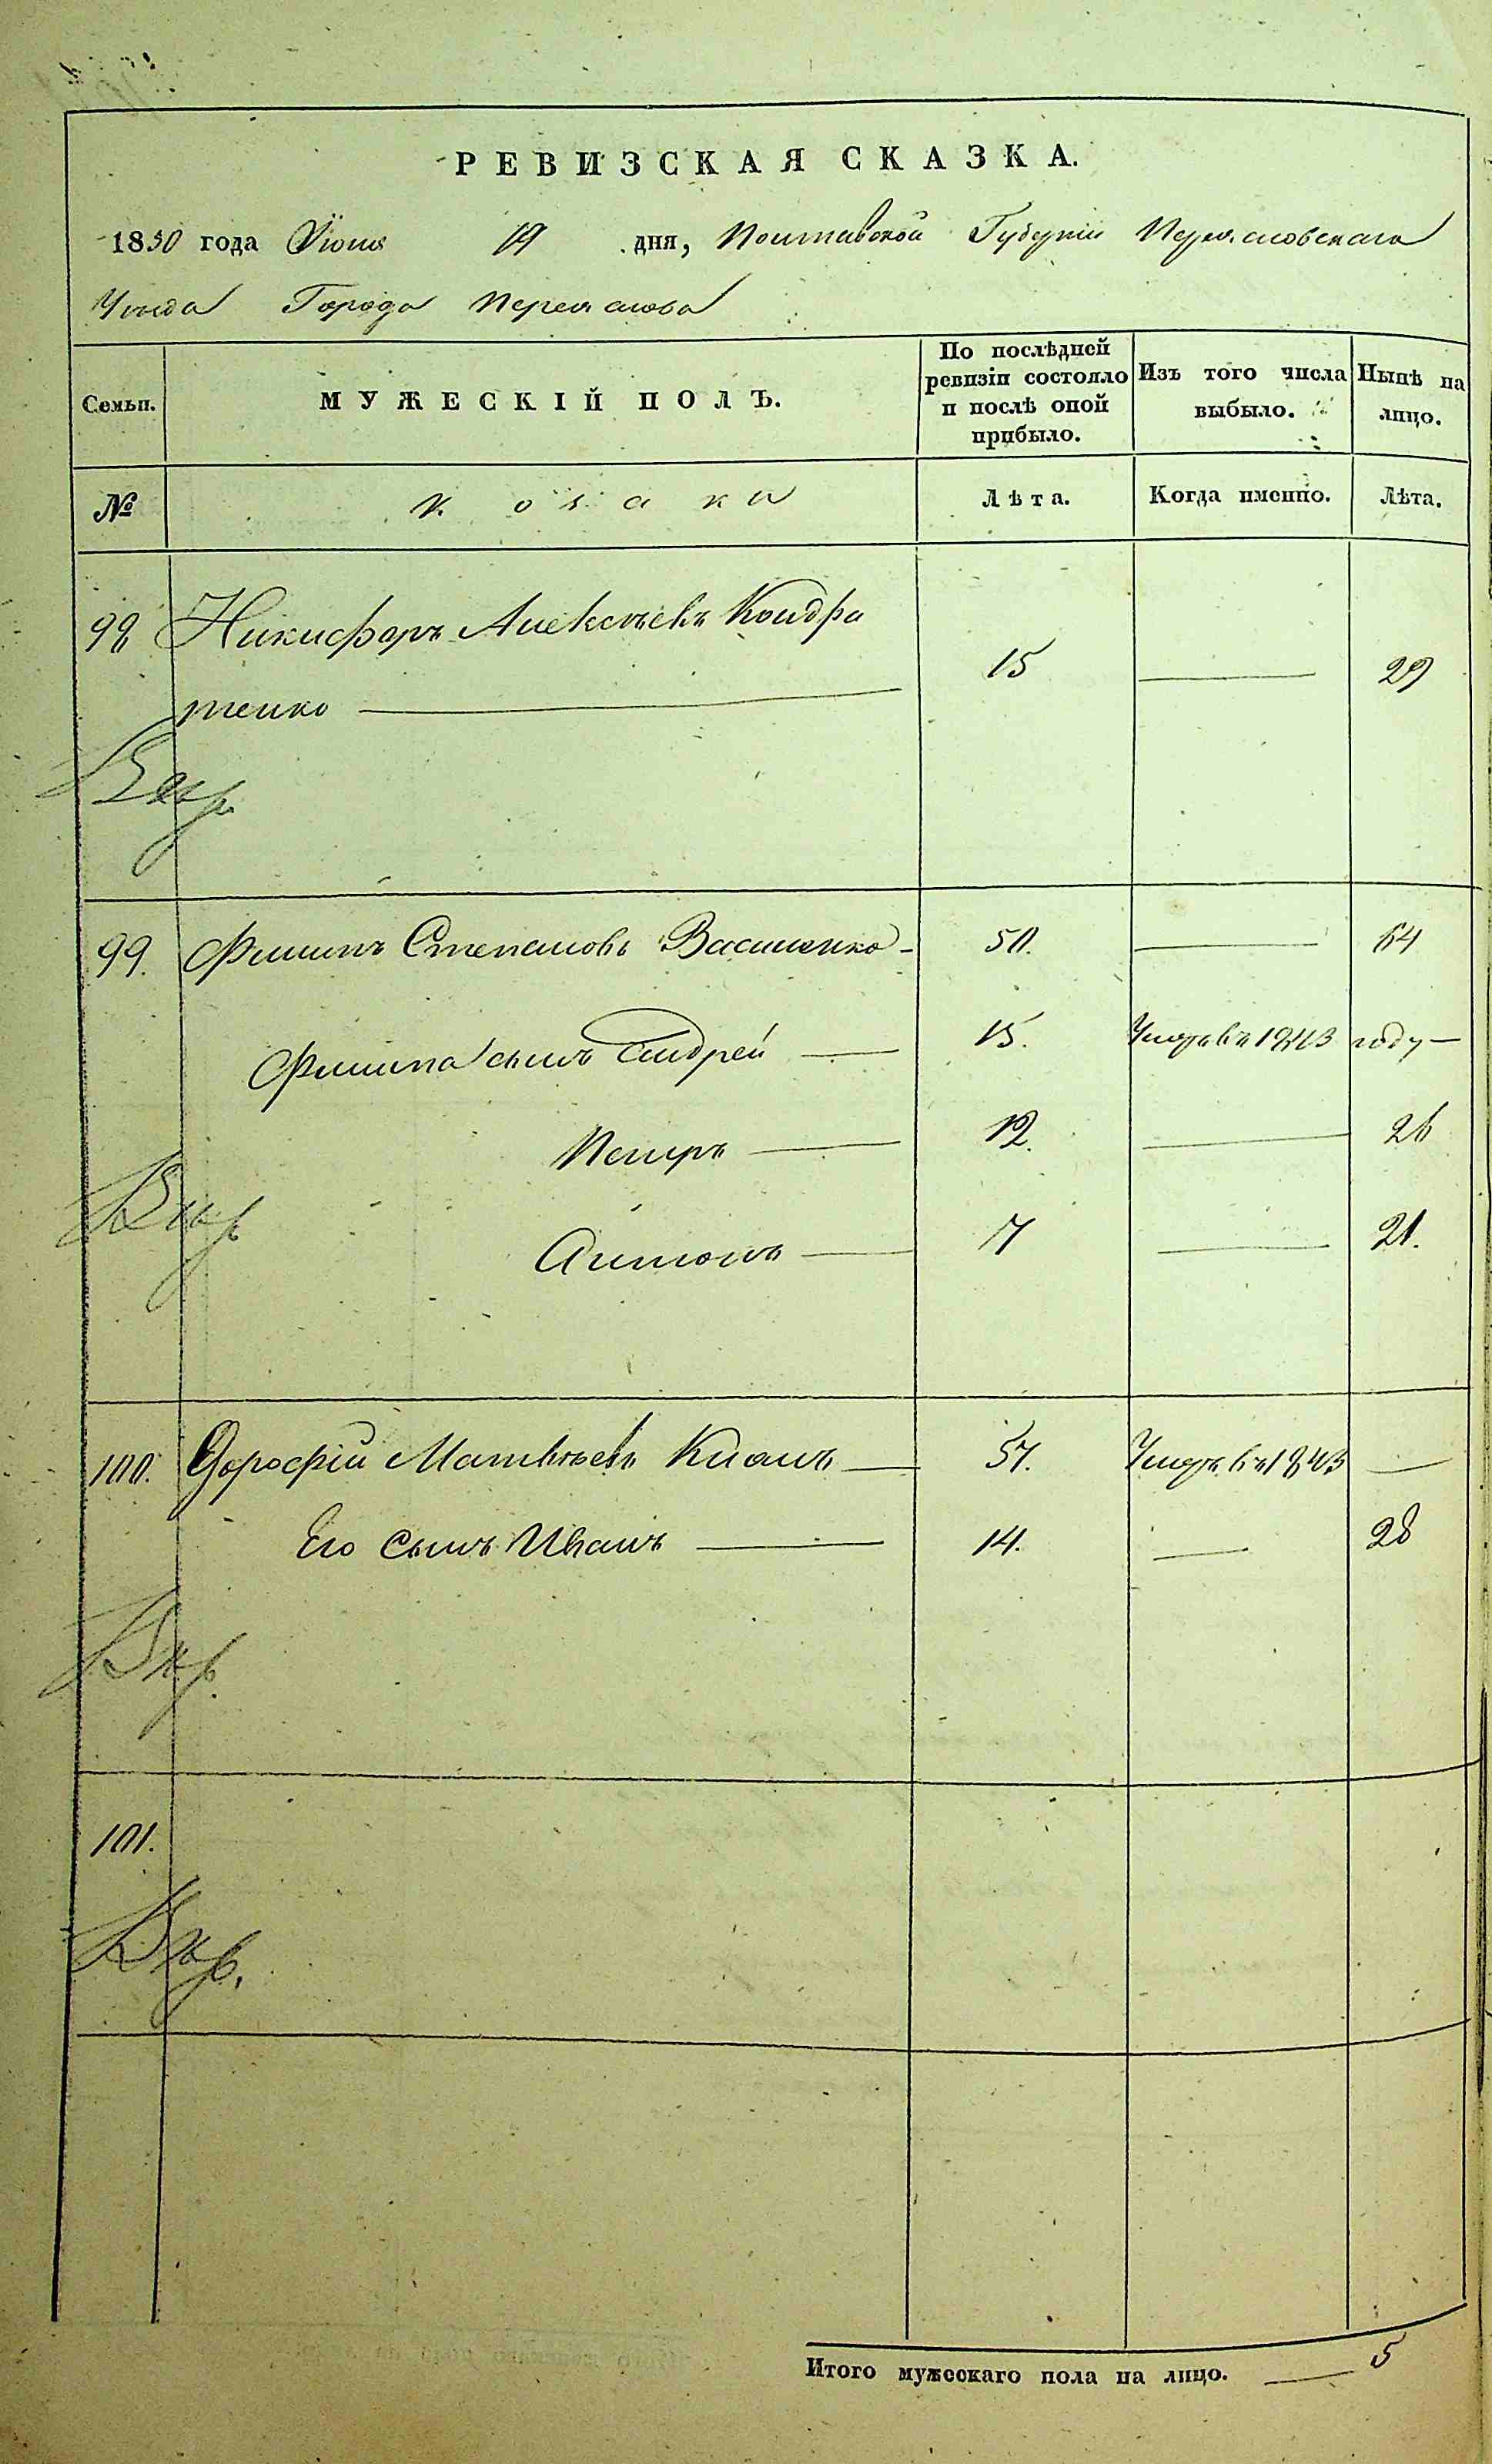 РЕВИЗСКАЯ СКАЗКА.
1850 года Июня 19 дня, Полтавской Губерніи Переяславскаго
Уѣзда Города Переяслава
Семьи. МУЖЕСКІЙ ПОЛЪ. По послѣдней ревизіи состояло и послѣ оной прибыло. Изъ того числа выбыло. Нынѣ на лицо.
№ Козаки Лѣта. Когда именно. Лѣта.
98 Никифоръ Алексѣевъ Кондра
тенко 15 29
99. Филипъ Степановъ Василенко 50. 64
Филипа сынъ Андрей 15. Умеръ въ 1843 году
Петръ 12. 26
Антонъ 7 21.
100. Дорофій Матвѣевъ Кіянъ 57. Умеръ въ 1843
Его сынъ Иванъ 14. 28
101.
Итого мужескаго пола на лицо. 5